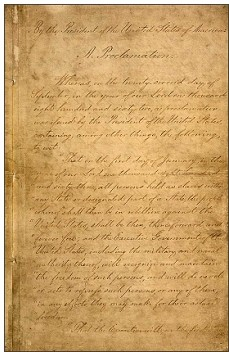 By the President of the United States of America:
A Proclamation.
Whereas, on the twenty-second day of
September, in the year of our Lord one thousand
eight hundred and sixty-two, a proclamation
was issued by the President of the United States,
containing, among other things, the following,
to wit:
"That on the first day of January, in the
year of our Lord one thousand eight hundred
and sixty-three, all persons held as slaves within
any State or designated part of a State, the people
whereof shall then be in rebellion against the
United States, shall be then, thenceforward, and
forever free; and the Executive Government of the
United States, including the military and naval
authority thereof, will recognize and maintain
the freedom of such persons, and will do no act
or acts to repress such persons, or any of them,
in any efforts they may make for their actual
freedom.
"That the Executive will, on the first day